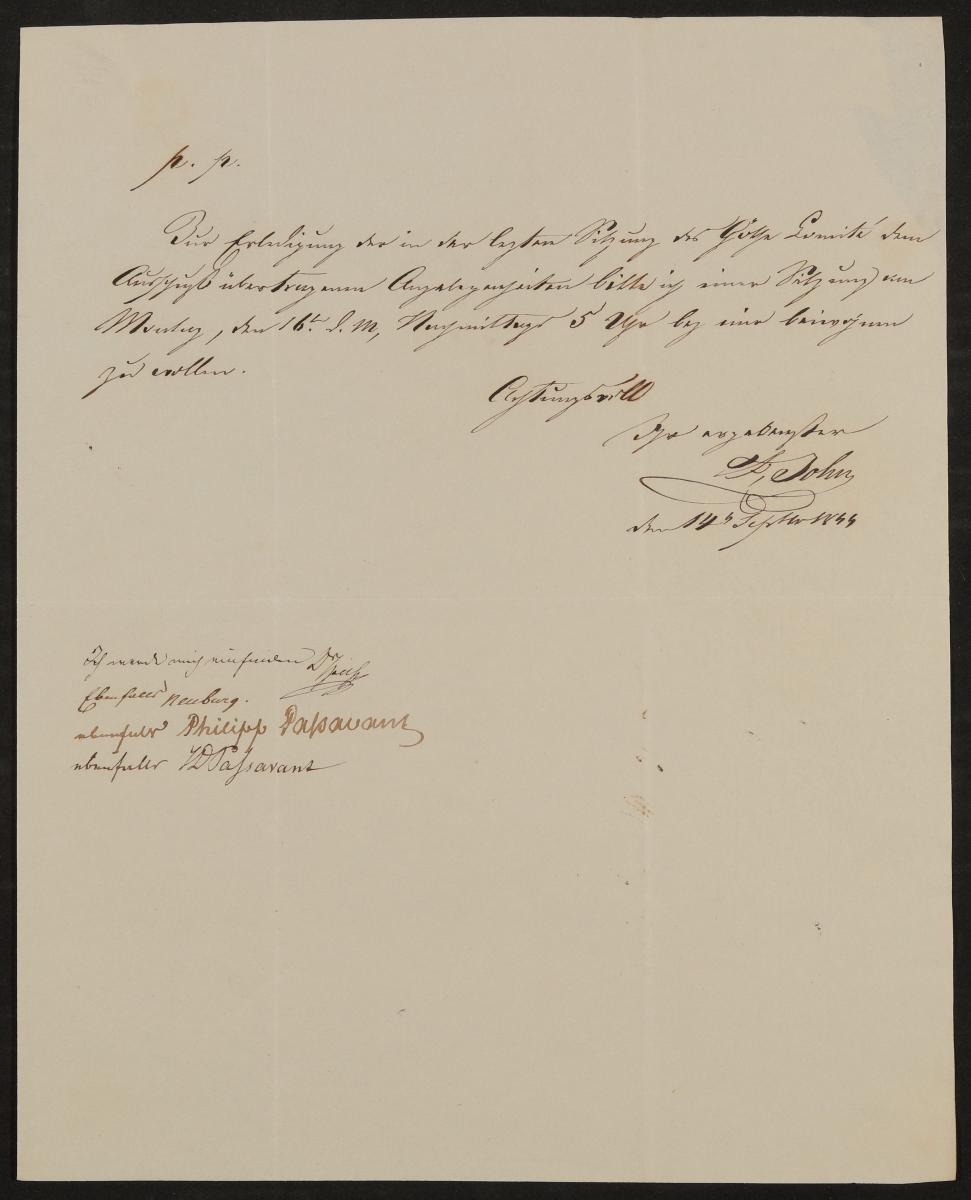 p. p.
Zur Erledigung der in der lezten Sitzung des Göthe Comité dem
Ausschuß übertragenen Angelegenheiten bitte ich einer Sitzung am
Montag, den 16t. d. M, Nachmittags 5 Uhr bey mir beiwohnen
zu wollen.
Achtungsvoll
Ihr ergebenster
F, John
den 14 Septbr
Ich werde mich einfinden Dr
Ebenfalls Neuburg.
ebenfalls Philipp Paßavant
ebenfalls JD Passavant